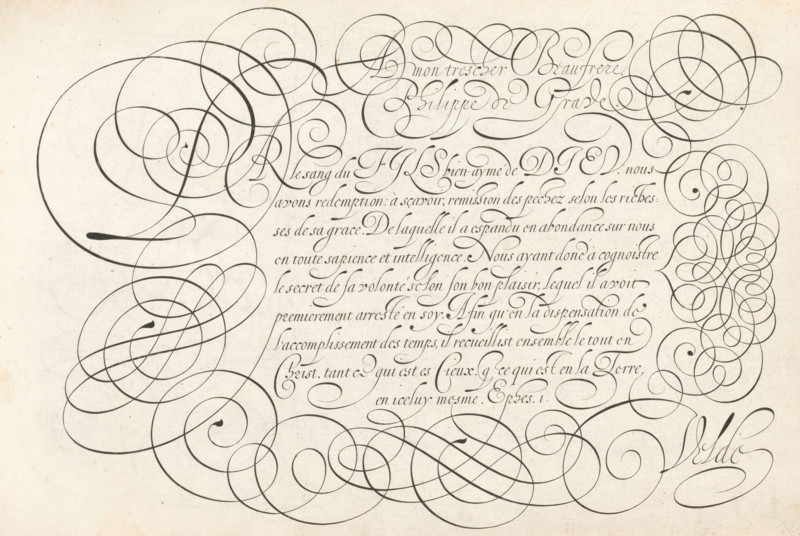 A mon trescher Beaufrere,
Philippe de Grave.
PAR le sang du FILS bien-aymé de DIEU, nous
avons redemption: à sçavoir, remission des pechez selon les riches-
ses de sa grace. De laquelle il a espandu en abondance sur nous
en toute sapience et intelligence. Nous ayant donc à cognoistre
le secret de sa volonte selon son bon plaisir, lequel il avoit
premierement arresté en soy. Afin qu'en la dispensation de
l'accomplissement des temps, il recueillist ensemble le tout en
Christ, tant ce qui est es Cieux, q̃ ce qui est en la Terre,
en iceluy mesme. Ephes. 1.
Velde